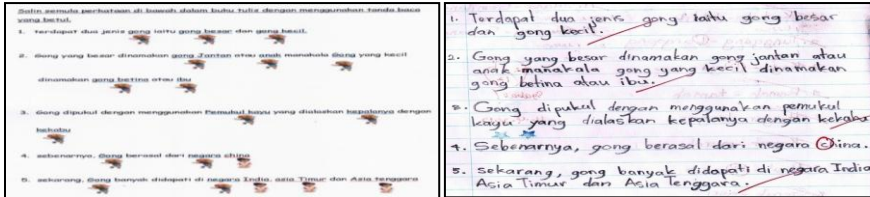 Salin semula perkataan di bawah dalam buku tulis dengan menggunakan tanda baca
yang betul.
1. terdapat dua jenis gong iaitu gong besar dan gong kecil.
2. Gong yang besar dinamakan gong Jantan atau anak manakala Gong yang kecil
dinamakan gong betina atau ibu
3. Gong dipukul dengan menggunakan Pemukul kayu yang dialaskan kepalanya dengan
kekabu
4. sebenarnya, Gong berasal dari negara china
5. sekarang, Gong banyak didapati di negara India, asia Timur dan Asia tenggara
1. Terdapat dua jenis gong iaitu gong besar
dan gong kecil.
2. Gong yang besar dinamakan gong jantan atau
anak manakala gong yang kecil dinamakan
gong betina atau ibu.
3. Gong dipukul dengan menggunakan pemukul
kayu yang dialaskan kepalanya dengan kekabu
4. Sebenarnya, gong berasal dari negara China.
5. sekarang, gong banyak didapati di negara India
Asia Timur dan Asia Tenggara.